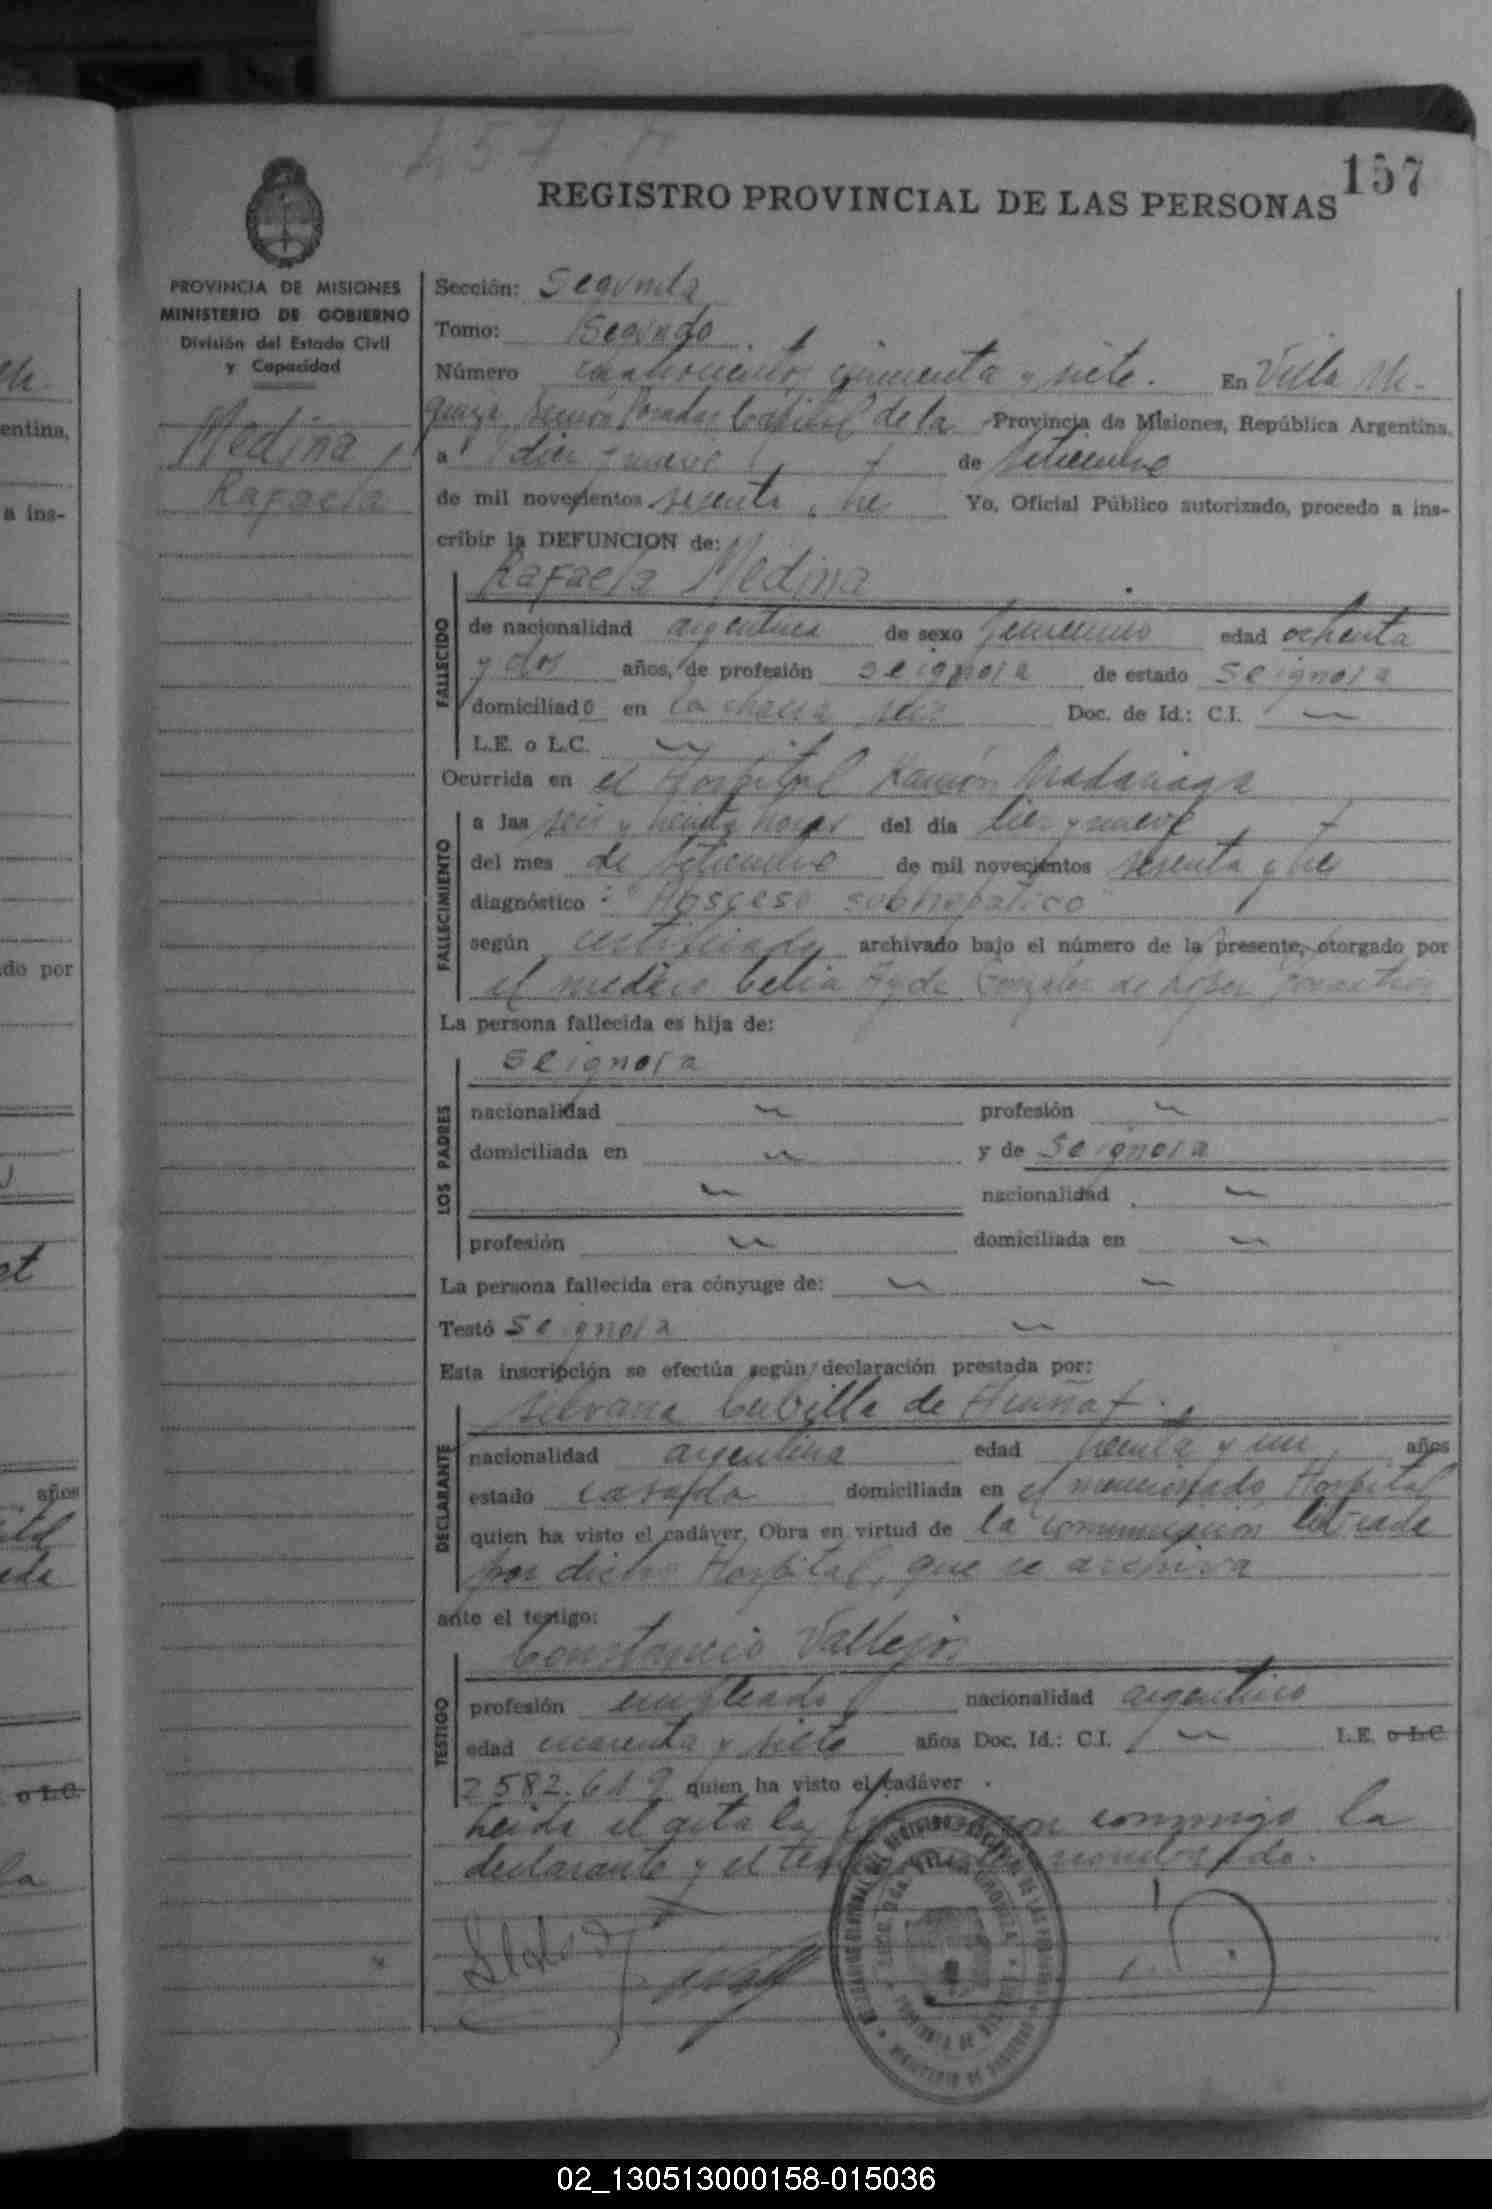 157
REGISTRO PROVINCIAL DE LAS PERSONAS
PROVINCIA DE MISIONES
MINISTERIO DE GOBIERNO
División del Estado Civil
y Capacidad
Medina,
Rafaela
Sección: Segunda
Tomo: Segundo
Número cuatrocientos cincuenta y siete. En Villa Ur-
quiza, Posadas Capital de la Provincia de Misiones, República Argentina,
a diez y nueve de setiembre
de mil novecientos sesenta y tres Yo, Oficial Público autorizado, procedo a ins-
cribir la DEFUNCION de:
Rafaela Medina
FALLECIDO
de nacionalidad argentina de sexo femenino edad ochenta
y dos años, de profesión se ignora de estado se ignora
domiciliado en la chacra Doc. de Id.: C.I.
L.E. o L.C.
Ocurrida en el Hospital Ramón Madariaga
FALLECIMIENTO
a las seis y treinta horas del día diez y nueve
del mes de setiembre de mil novecientos sesenta y tres
diagnóstico: "Absceso subhepático"
según certificado archivado bajo el número de la presente, otorgado por
el médico Celia Gonzalez de
La persona fallecida es hija de:
LOS PADRES
se ignora
nacionalidad profesión
domiciliada en y de se ignora
nacionalidad
profesión domiciliada en
La persona fallecida era cónyuge de:
Testó se ignora
Esta inscripción se efectúa según declaración prestada por:
DECLARANTE
Silvana Cubilla de
nacionalidad argentina edad treinta y un años
estado casada domiciliada en el mencionado Hospital
quien ha visto el cadáver. Obra en virtud de la comunicación librada
por dicho Hospital, que se archiva
ante el testigo:
Constancio Vallejos
TESTIGO
profesión empleado nacionalidad argentino
edad cuarenta y siete años Doc. Id.: C.I. L.E. o L.C.
2582.619 quien ha visto el cadáver.
Leida el acta la conmigo la
declarante y el testigo
02_130513000158-015036